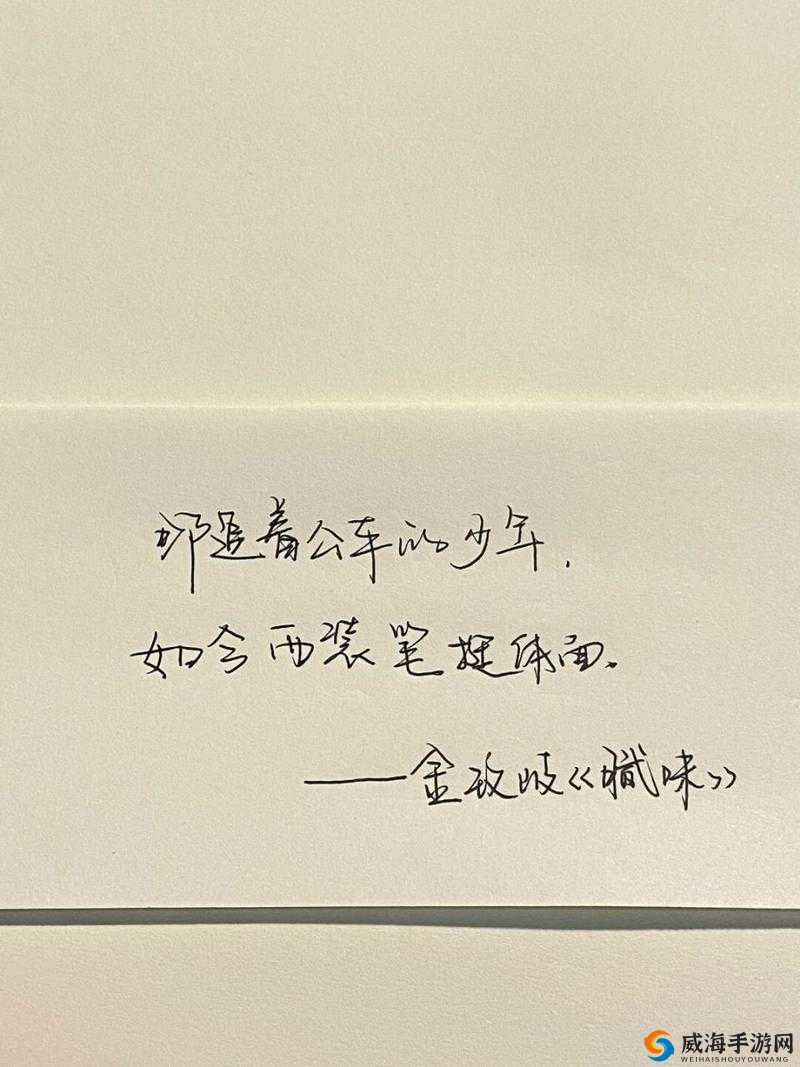 那追着公车的少年，
如今西装笔挺体面。
——金玟岐《職味》
威海手游网
WEIHAISHOUYOUWANG